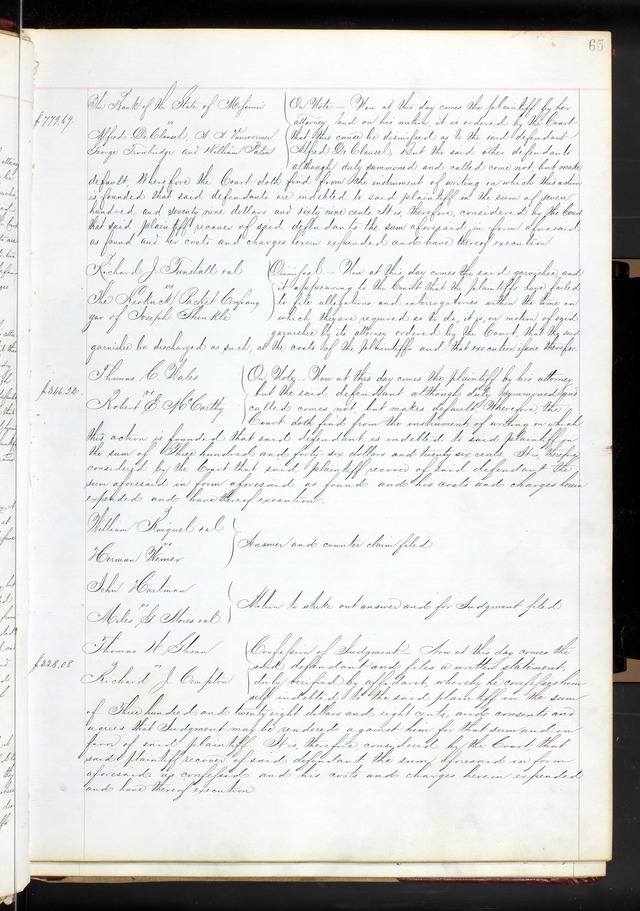 65
$779.69.
The Bank of the State of Missouri
vs
Alfred De Clausel, A A Vansrouse
George Trowbridge and William Paton
On Note - Now at this day comes the plaintiff by her
attorney and on her motion it is ordered by the Court
that this cause be dismissed as to the said defendant
Alfred De Clausel, But the said other defendants
although duly summoned and called come not, but make
default, Wherefore the Court doth find from the instrument of writing on which this action
is founded that said defendants are indebted to said plaintiff in the sum of seven
hundred and seventy nine dollars and sixty nine cents. It is, therefore, considered by the Court
that said plaintiff recover of said defendants the sum aforesaid in form aforesaid
as found and her costs and charges herein expended and have thereof execution
Richard J. Tunstall et al
vs
The Keokuck Packet Company
gar of Joseph Shinkle
Dismissal - Now at this day comes the said garnishee, and
it appearing to the Court that the plaintiffs have failed
to file allegations and interrogatories within the time in
which they are required so to do, it is, on motion of said
garnishee by its attorney ordered by the Court, that the said
garnishee be discharged as such, at the costs of the plaintiffs and that execution issue therefor.
$346.26.
Thomas C. Wales
vs
Robert E. McCarthy
On Note - Now at this day comes the plaintiff by his attorney
but the said defendant although duly summoned and
called comes not, but makes default Wherefore the
Court doth find from the instrument of writing on which
this action is founded that said defendant is indebted to said plaintiff in
the sum of Three hundred and forty six dollars and twenty six cents. It is, therefore,
considered by the Court that said plaintiff recover of said defendant the
sum aforesaid in form aforesaid as found and his costs and charges herein
expended and have thereof execution.
William Knignel et al
vs
Herman Weiner
Answer and counter claim filed
John Hartman
vs
Miles G. Moies et al
Motion to strike out answer and for Judgment filed
$328.08
Thomas W. Sloan
vs
Richard J. Compton
Confession of Judgment - Now at this day comes the
said defendant and files a written statement,
duly verified by affidavit, whereby he confesses him
self indebted to the said plaintiff in the sum
of Three hundred and twenty eight dollars and eight cents, and consents and
agrees that Judgment may be rendered against him for that sum and in
favor of said plaintiff. It is therefore considered by the Court, that
said plaintiff recover of said defendant the sum aforesaid in form
aforesaid as confessed and his costs and charges herein expended
and have thereof execution